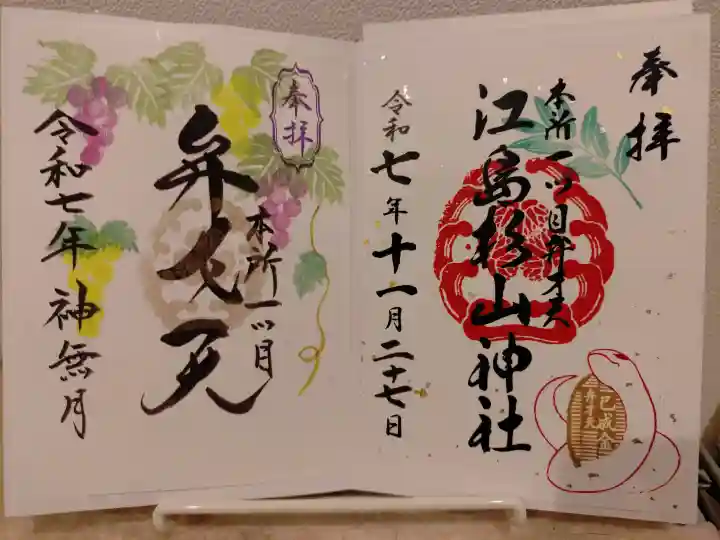 奉拝
本所一ツ目弁才天
江島杉山神社
令和七年十一月二十七日
巳成金
弁才天
奉拝
本所一ツ目
弁才天
令和七年 神無月